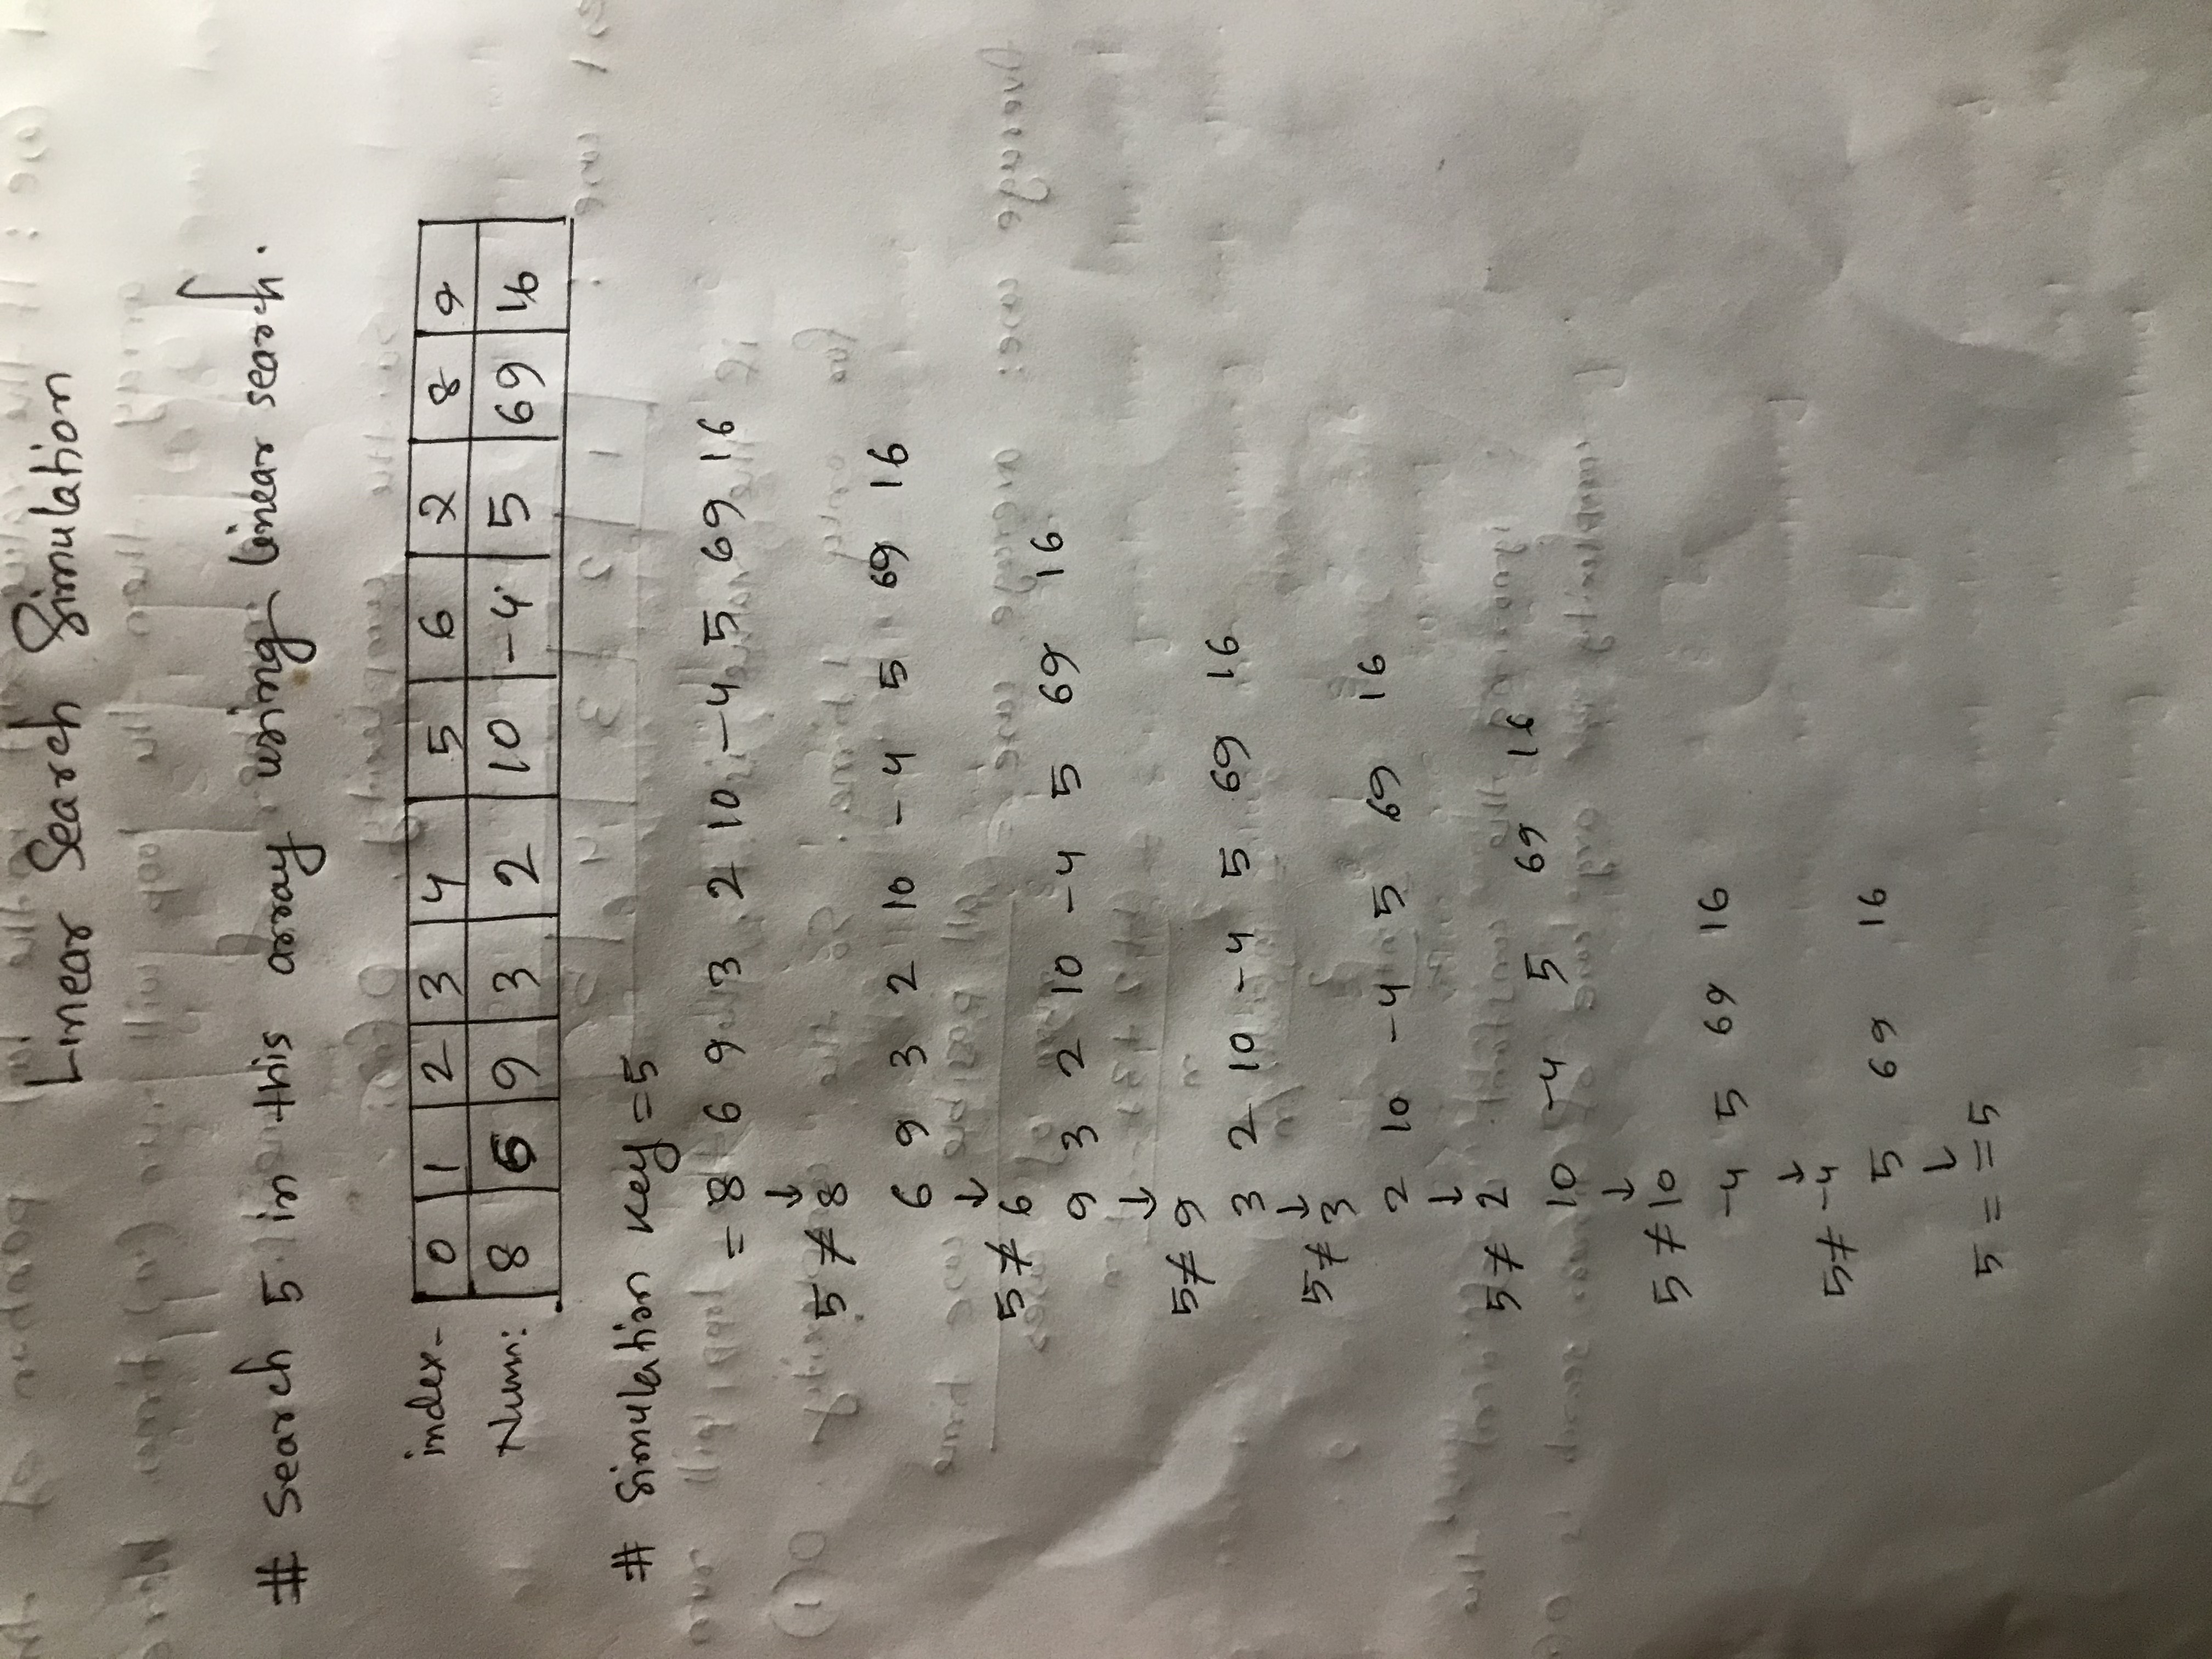 Linear Search Simulation
# Search 5 in this array using linear search.
index- 0 1 2 3 4 5 6 7 8 9
Num: 8 6 9 3 2 10 -4 5 69 16
# Simulation key = 5
= 8 6 9 3 2 10 -4 5 69 16
↓
5 ≠ 8
6 9 3 2 10 -4 5 69 16
↓
5 ≠ 6
9 3 2 10 -4 5 69 16
↓
5 ≠ 9
3 2 10 -4 5 69 16
↓
5 ≠ 3
2 10 -4 5 69 16
↓
5 ≠ 2
10 -4 5 69 16
↓
5 ≠ 10
-4 5 69 16
↓
5 ≠ -4
5 69 16
↓
5 = = 5